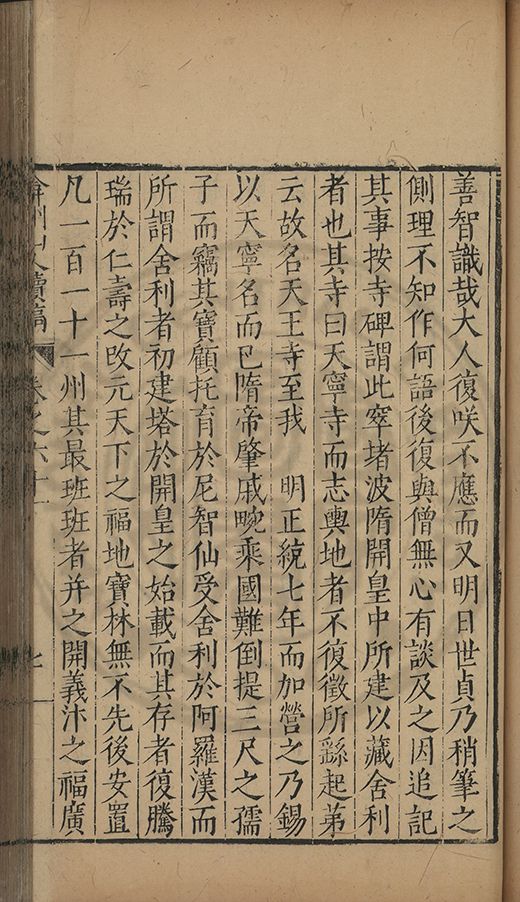 善智識哉大人復咲不應而又明日世貞乃稍筆之
側理不知作何語後復與僧無心有談及之因追記
其事按寺碑謂此窣堵波隋開皇中所建以藏舍利
者也其寺曰天寧寺而志輿地者不復徵所繇起第
云故名天王寺至我　明正統七年而加營之乃錫
以天寧名而已隋帝肇戚畹乘國難倒提三尺之孺
子而竊其寶顧托育於尼智仙受舍利於阿羅漢而
所謂舍利者初建塔於開皇之始載而其存者復騰
瑞於仁壽之改元天下之福地寶林無不先後安置
凡一百一十一州其最班班者并之開義汴之福廣
弇州山人續稿　卷之六十一　七